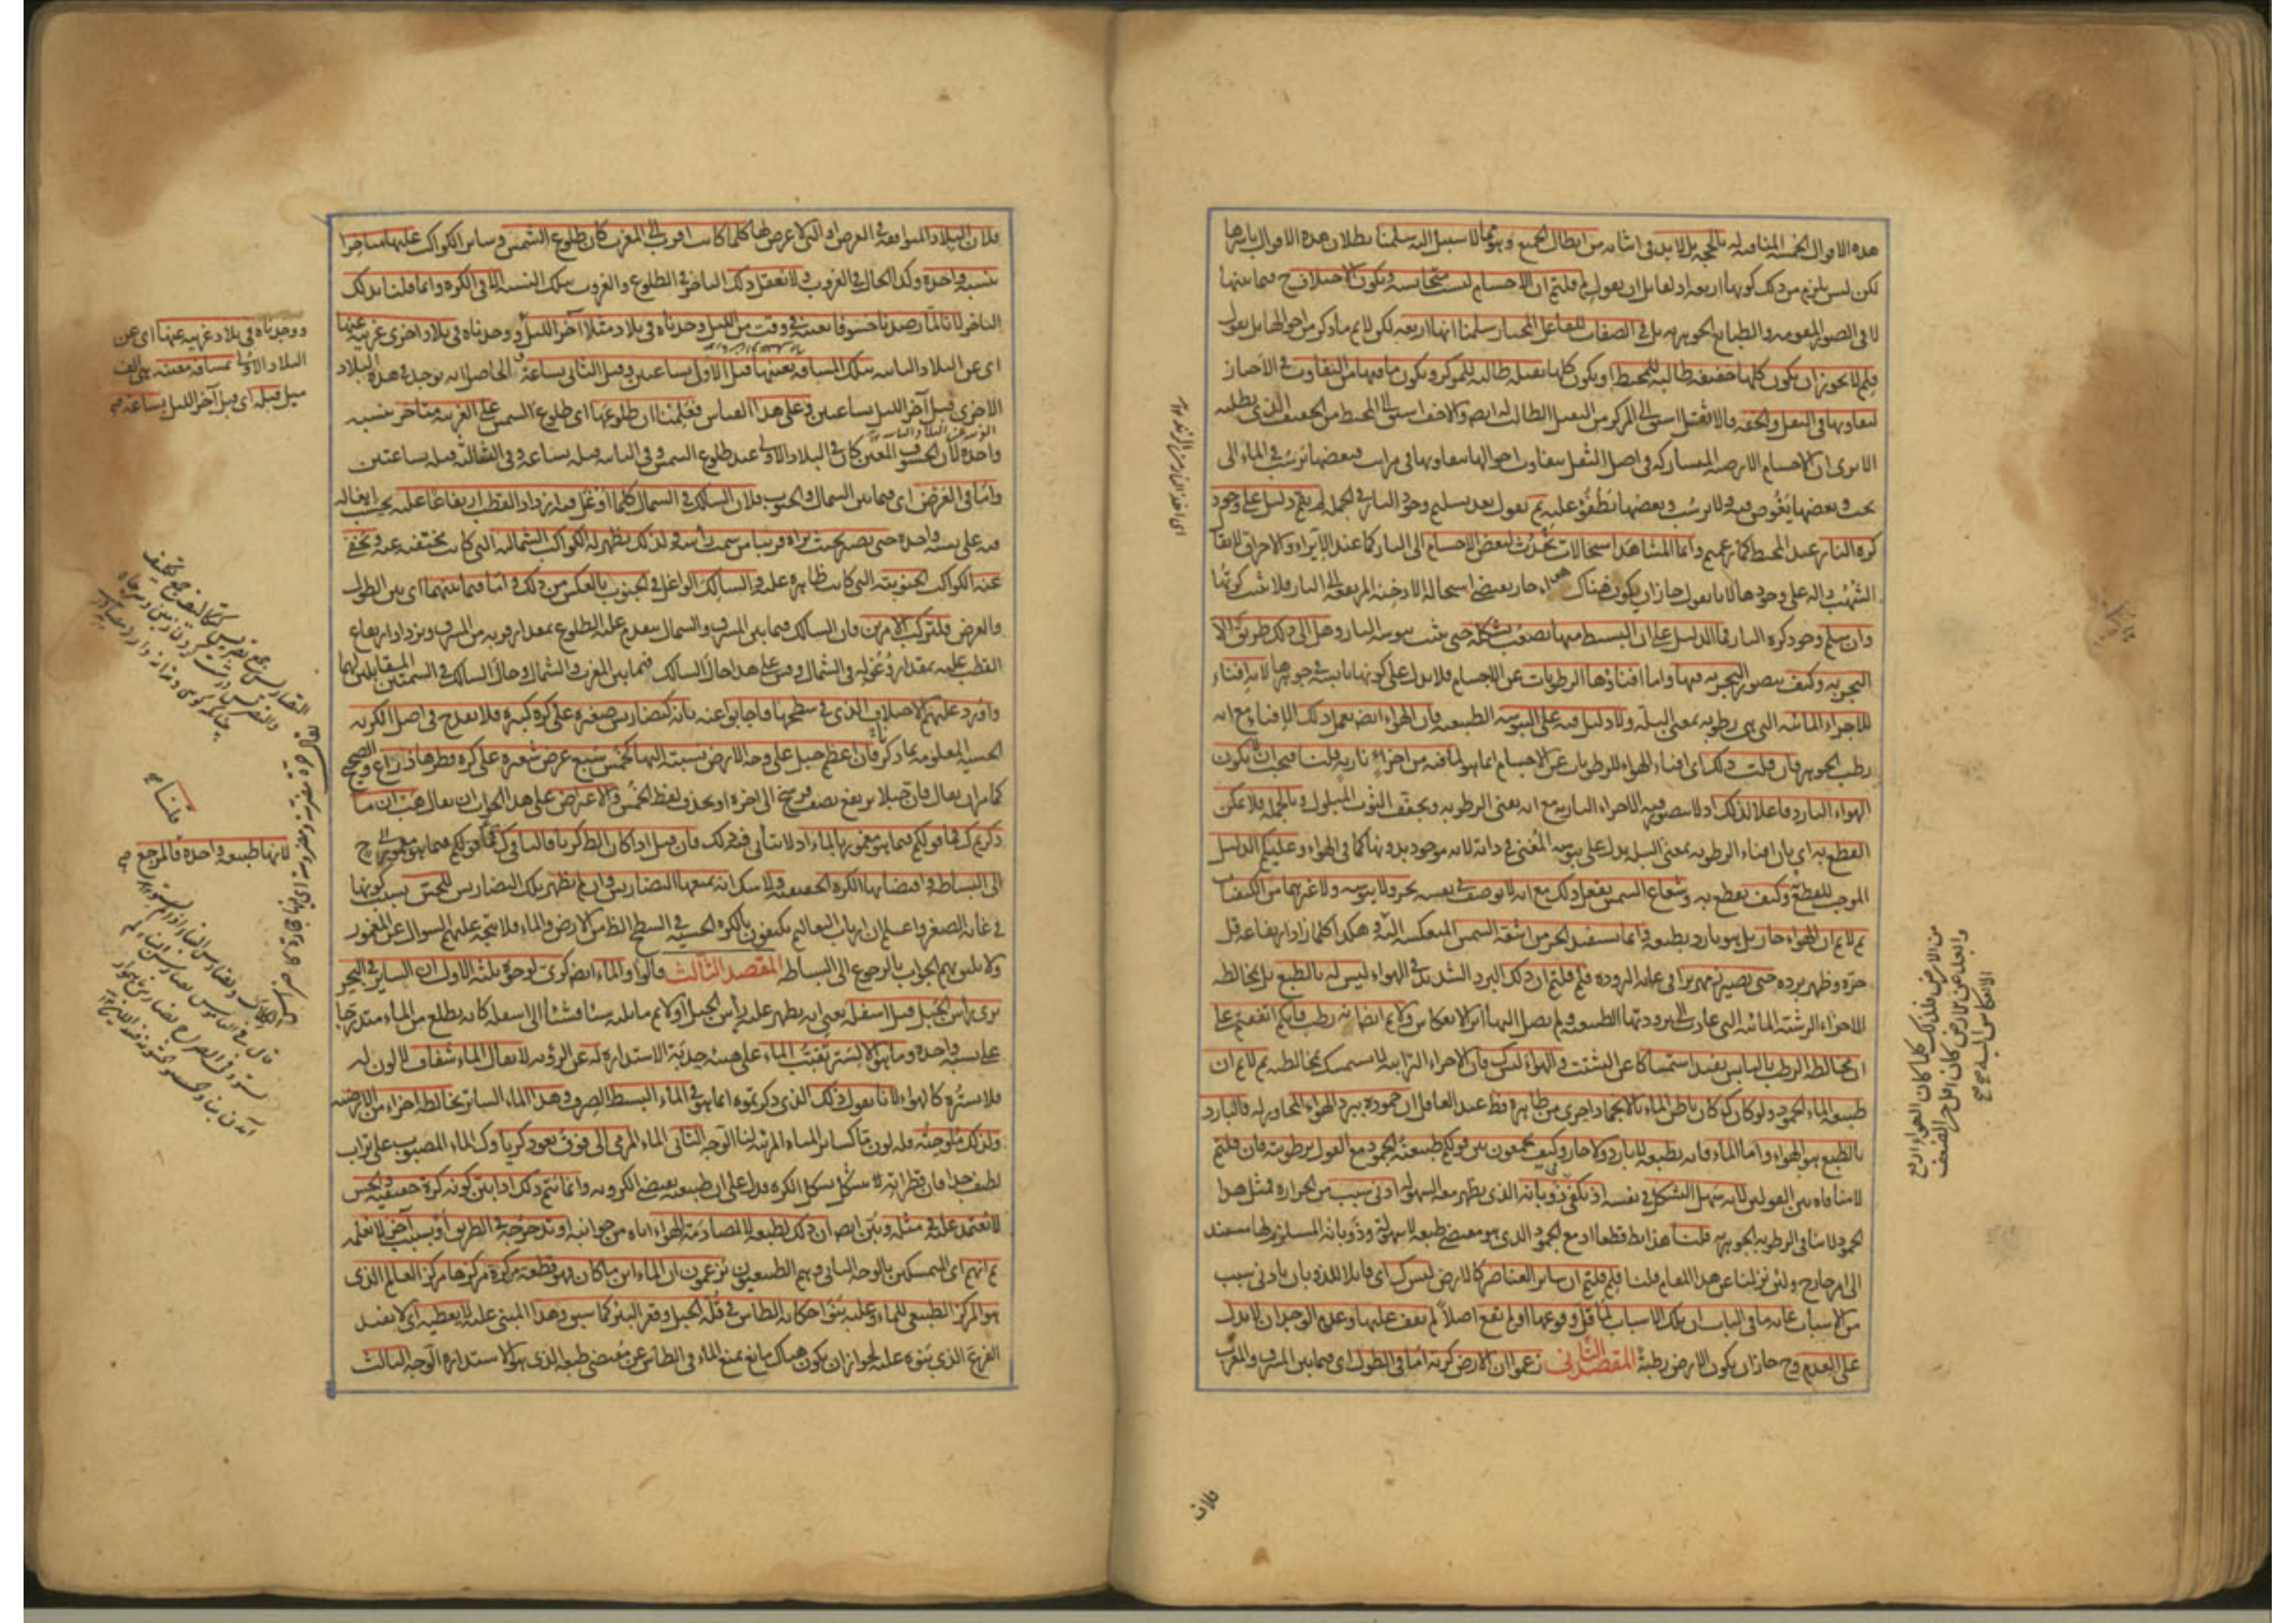 هذه الاقوال الخمسة المنافية له بالحجة بل لا بد في اثباته من ابطال الجميع وهو مما لا سبيل اليه سلمنا بطلان هذه الاقوال باسرها
لكن ليس يلزم من ذلك كونها اربعة اذ لقائل ان يقول لم قلتم ان الاجسام ليست متجانسة ويكون الاختلاف ح فيما بينها
لا في الصور المقومة والطبايع الجوهرية بل في الصفات للفاعل المختار سلمنا انها اربعة لكن لانم ما ذكر من احوالها بل نقول
فلم لا يجوز ان يكون كلها خفيفة طالبة للمحيط او يكون كلها ثقيلة طالبة للمركز ويكون ما فيها من التفاوت في الاحياز
لتفاوتها في الثقل والخفة فالاثقل اسبق الى المركز من الثقيل الطالب له ايض والاخف اسبق الى المحيط من الخفيف الذي يطلبه
الا يرى ان الاجسام الارضية المتشاركة في اصل الثقل يتفاوت احوالها بتفاوتها في مراتبه فبعضها ترسب في الماء الى
تحت وبعضها يغوص فيه ولا يرسب وبعضها تطفو عليه ثم نقول بعد تسليم وجود النار في الجملة لم يقم دليل على وجود
كرة النار عند المحيط كما زعمتم وانما المشاهد استحالات تحدث لبعض الاجسام الى النار كما عند الايراء والاحراق لا يقال
الشهب دالة على وجودها لانا نقول جاز ان يكون هناك هواء حار يقتضي استحالة الادخنة المرتفعة الى النار فلا يثبت كرتها
وان سلم وجود كرة النار فما الدليل على ان البسيط منها يصعب تشكله حتى يثبت يبوسة النار وهل الى ذلك طريق الا
التجربة وكيف يتصور التجربة فيها واما افناؤها الرطوبات عن الاجسام فلا يدل على كونها يابسة في جوهرها لانه افناء
للاجزاء المائية التي هي رطوبة بمعنى البلة ولا دليل فيه على اليبوسة الطبيعية فان الهواء ايض يعمل ذلك الافناء مع انه
رطب الجوهر فان قلت ذلك اي افناء الهواء للرطوبات عن الاجسام انما هو لما فيه من اجزاء نارية قلنا فيجب ان لا يكون
الهواء البارد فاعلا لذلك اذ لا يتصور فيه الاجزاء النارية مع انه يفني الرطوبة ويجفف الثوب المبلول وبالجملة فلا يمكن
القطع به اي بان افناء الرطوبة بمعنى البلل يدل على يبوسة المفني في ذاته لانه موجود بدونها كما في الهواء وعليكم الدليل
الموجب للقطع وكيف يقطع به وشعاع الشمس يفعل ذلك مع انه لا يوصف في نفسه بحر ولا يبوسة ولا غيرهما من الكيفيات
ثم لانم ان الهواء حار بل هو بارد بطبعه وانما يستفيد الحر من اشعة الشمس المنعكسة اليه وهكذا كلما زاد ارتفاعه قل
حره وظهر برده حتى يصير زمهريرا في غاية البرودة فلم قلتم ان ذلك البرد الشديد في الهواء ليس له بالطبع بل بمخالطة
الاجزاء الرشية المائية التي عادت الى برودتها الطبيعية ولم يصل اليها اثر الانعكاس ولانم ايضا انه رطب فانكم اتفقتم على
ان مخالطة الرطب باليابس يفيد استمساكا عن التشتت والهواء ليس كك فان الاجزاء الترابية لا يستمسك بمخالطته ثم لانم ان
طبيعة الماء الجمود ولو كان كك كان باطن الماء بالانجماد احرى من ظاهره قط عند العاقل ان جموده ببرد الهواء المجاور له فالبارد
بالطبع هو الهواء واما الماء فانه بطبعه لا بارد ولا حار وكيف تجمعون بين قولكم طبيعته الجمود مع القول برطوبته فان قلتم
لا منافاة بين القولين لانه سهل التشكل في نفسه اذ يكفي في ذوبانه الذي يظهر معه السهولة ادنى سبب من الحرارة فمثل هذا
الجمود لا ينافي الرطوبة الجوهرية قلنا هذا بط قطعا اذ مع الجمود الذي هو مقتضى طبعه لا سهولة وذوبانه المستلزم لها مستند
الى امر خارج ولئن نزلنا عن هذا المقام قلنا فلم قلتم ان سائر العناصر كالارض ليس كك اي قابلا للذوبان بادنى سبب
من الاسباب غاية ما في الباب ان تلك الاسباب لما قل وقوعها او لم تقع اصلا لم نقف عليها وعدم الوجدان لا يدل
على العدم وح جاز ان يكون الارض رطبة المقصد الثاني زعموا ان الارض كرية اما في الطول اي فيما بين المشرق والمغرب
فلان
من الارض فلذلك كلما كان الهواء ارفع
وابعد عن الارض كان اقل حرا لضعف
الانعكاس اليه
فلان البلاد المتوافقة في العرض او التي لا عرض لها كلما كانت اقرب الى المغرب كان طلوع الشمس وسائر الكواكب عليها متاخرا
بنسبة واحدة وكذا الحال في الغروب ولا يعقل ذلك التاخر في الطلوع والغروب بتلك النسبة الا في الكرة وانما قلنا بذلك
التاخر لانا لما رصدنا خسوفا بعينه في وقت من الليل وجدناه في بلاد مثلا آخر الليل ووجدناه في بلاد اخرى غربية عنها
اي عن البلاد الثانية بتلك المسافة بعينها قبل الاول بساعتين وقبل الثاني بساعة فالحاصل انه يوجد في هذه البلاد
الاخرى قبل آخر الليل بساعتين وعلى هذا القياس فعلمنا ان طلوعها اي طلوع الشمس على الغربية متاخر بنسبة
واحدة لان الخسوف المعين كان في البلاد الاولى عند طلوع الشمس وفي الثانية قبله بساعة وفي الثالثة قبله بساعتين
واما في العرض اي فيما بين الشمال والجنوب فلان السالك في الشمال كلما اوغل فيه ازداد القطب ارتفاعا عليه بحسب ايغاله
فيه على نسبة واحدة حتى يصير بحيث يراه قريبا من سمت رأسه ولذلك تظهر له الكواكب الشمالية التي كانت مختفية عنه وتخفى
عنه الكواكب الجنوبية التي كانت ظاهرة عليه والسالك الواغل في الجنوب بالعكس من ذلك واما فيما بينهما اي بين الطول
والعرض فلتركب الامرين فان السالك فيما بين المشرق والشمال يتقدم عليه الطلوع بمقدار قربه من المشرق ويزداد ارتفاع
القطب عليه بمقدار وغوله في الشمال وقس على هذا حال السالك فيما بين المغرب والشمال وحال السالك في السمتين المتقابلين لهما
واورد عليهم الاختلاف الذي في سطحها فاجابوا عنه بانه كتضاريس صغيرة على كرة كبيرة فلا يقدح في اصل الكرية
الحسية المعلومة بما ذكر فان اعظم جبل على وجه الارض نسبته اليها كخمس سبع عرض شعيرة على كرة قطرها ذراع والصحيح
كما مر ان يقال فان جبلا يرتفع نصف فرسخ الى اخره او يحذف لفظ الخمس والاعتراض على هذا الجواب ان يقال هب ان ما
ذكرتم كك فما قولكم فيما هو مغمور بالماء اذ لا يتأتى فيه ذلك فان قيل اذا كان الظ كريا فالباقي كك فما قولكم فيما هو
الى البساطة واقتضائها الكرة الحقيقية ولا شك انه يمنعها التضاريس وان لم تظهر تلك التضاريس للحس بسبب كونها
في غاية الصغر واعلم ان ارباب التعاليم يكتفون بالكرة الحسية في السطح الظ من الارض والماء فلا يتجه عليهم السؤال عن المغمور
ولا يليق بهم الجواب بالرجوع الى البساطة المقصد الثالث قالوا والماء ايض كري لوجوه ثلثة الاول ان السائر في البحر
يرى رأس الجبل قبل اسفله يعني انه يظهر عليه رأس الجبل اولا ثم ما يليه شيئا فشيئا الى اسفله كانه يطلع من الماء متدرجا
على نسبة واحدة وما هو الا لستر تقبب الماء على هيئة حدبة الاستدارة له عن الرؤية لا يقال الماء شفاف لا لون له
فلا يستره كالهواء لانا نقول ذلك الذي ذكرتموه انما هو في الماء البسيط الصرف وهذا الماء الساتر تخالطه اجزاء من الارضية
ولذلك ملوحته فله لون ما كسائر المياه المرئية لنا الوجه الثاني الماء المرمي الى فوق يعود كريا وكك الماء المصبوب على تراب
لطيف جدا فان قطراته تتشكل بشكل الكرة فدل على ان طبيعته يقتضي الكروية وانما يتم ذلك اذا تبين كونه كرة حقيقية والحس
لا يعتمد عليه في مثله وتبين ايض ان ذلك لطبعه لا لمصادمة الهواء اياه من جوانبه او تدحرجه في الطريق او بسبب آخر لا نعلمه
ثم انهم اي المتمسكين بالوجه الثاني وهم الطبيعيون يزعمون ان الماء اين ما كان فهو قطعة من كرة مركزها مركز العالم الذي
هو المركز الطبيعي للماء وعليه بنوا حكاية الطاس في قلة الجبل وقعر البئر كما سبق وهذا المبنى عليه لا يعطيه اي لا يفيد
الفرع الذي بنوه عليه لجواز ان يكون هناك مانع يمنع الماء في الطاس عن مقتضى طبعه الذي هو الاستدارة الوجه الثالث
ووجدناه في بلاد غربية عنها اي عن
البلاد الاولى بمسافة معينة هي الف
ميل قبله اي قبل آخر الليل بساعة
لانها طبيعة واحدة فالمرجع